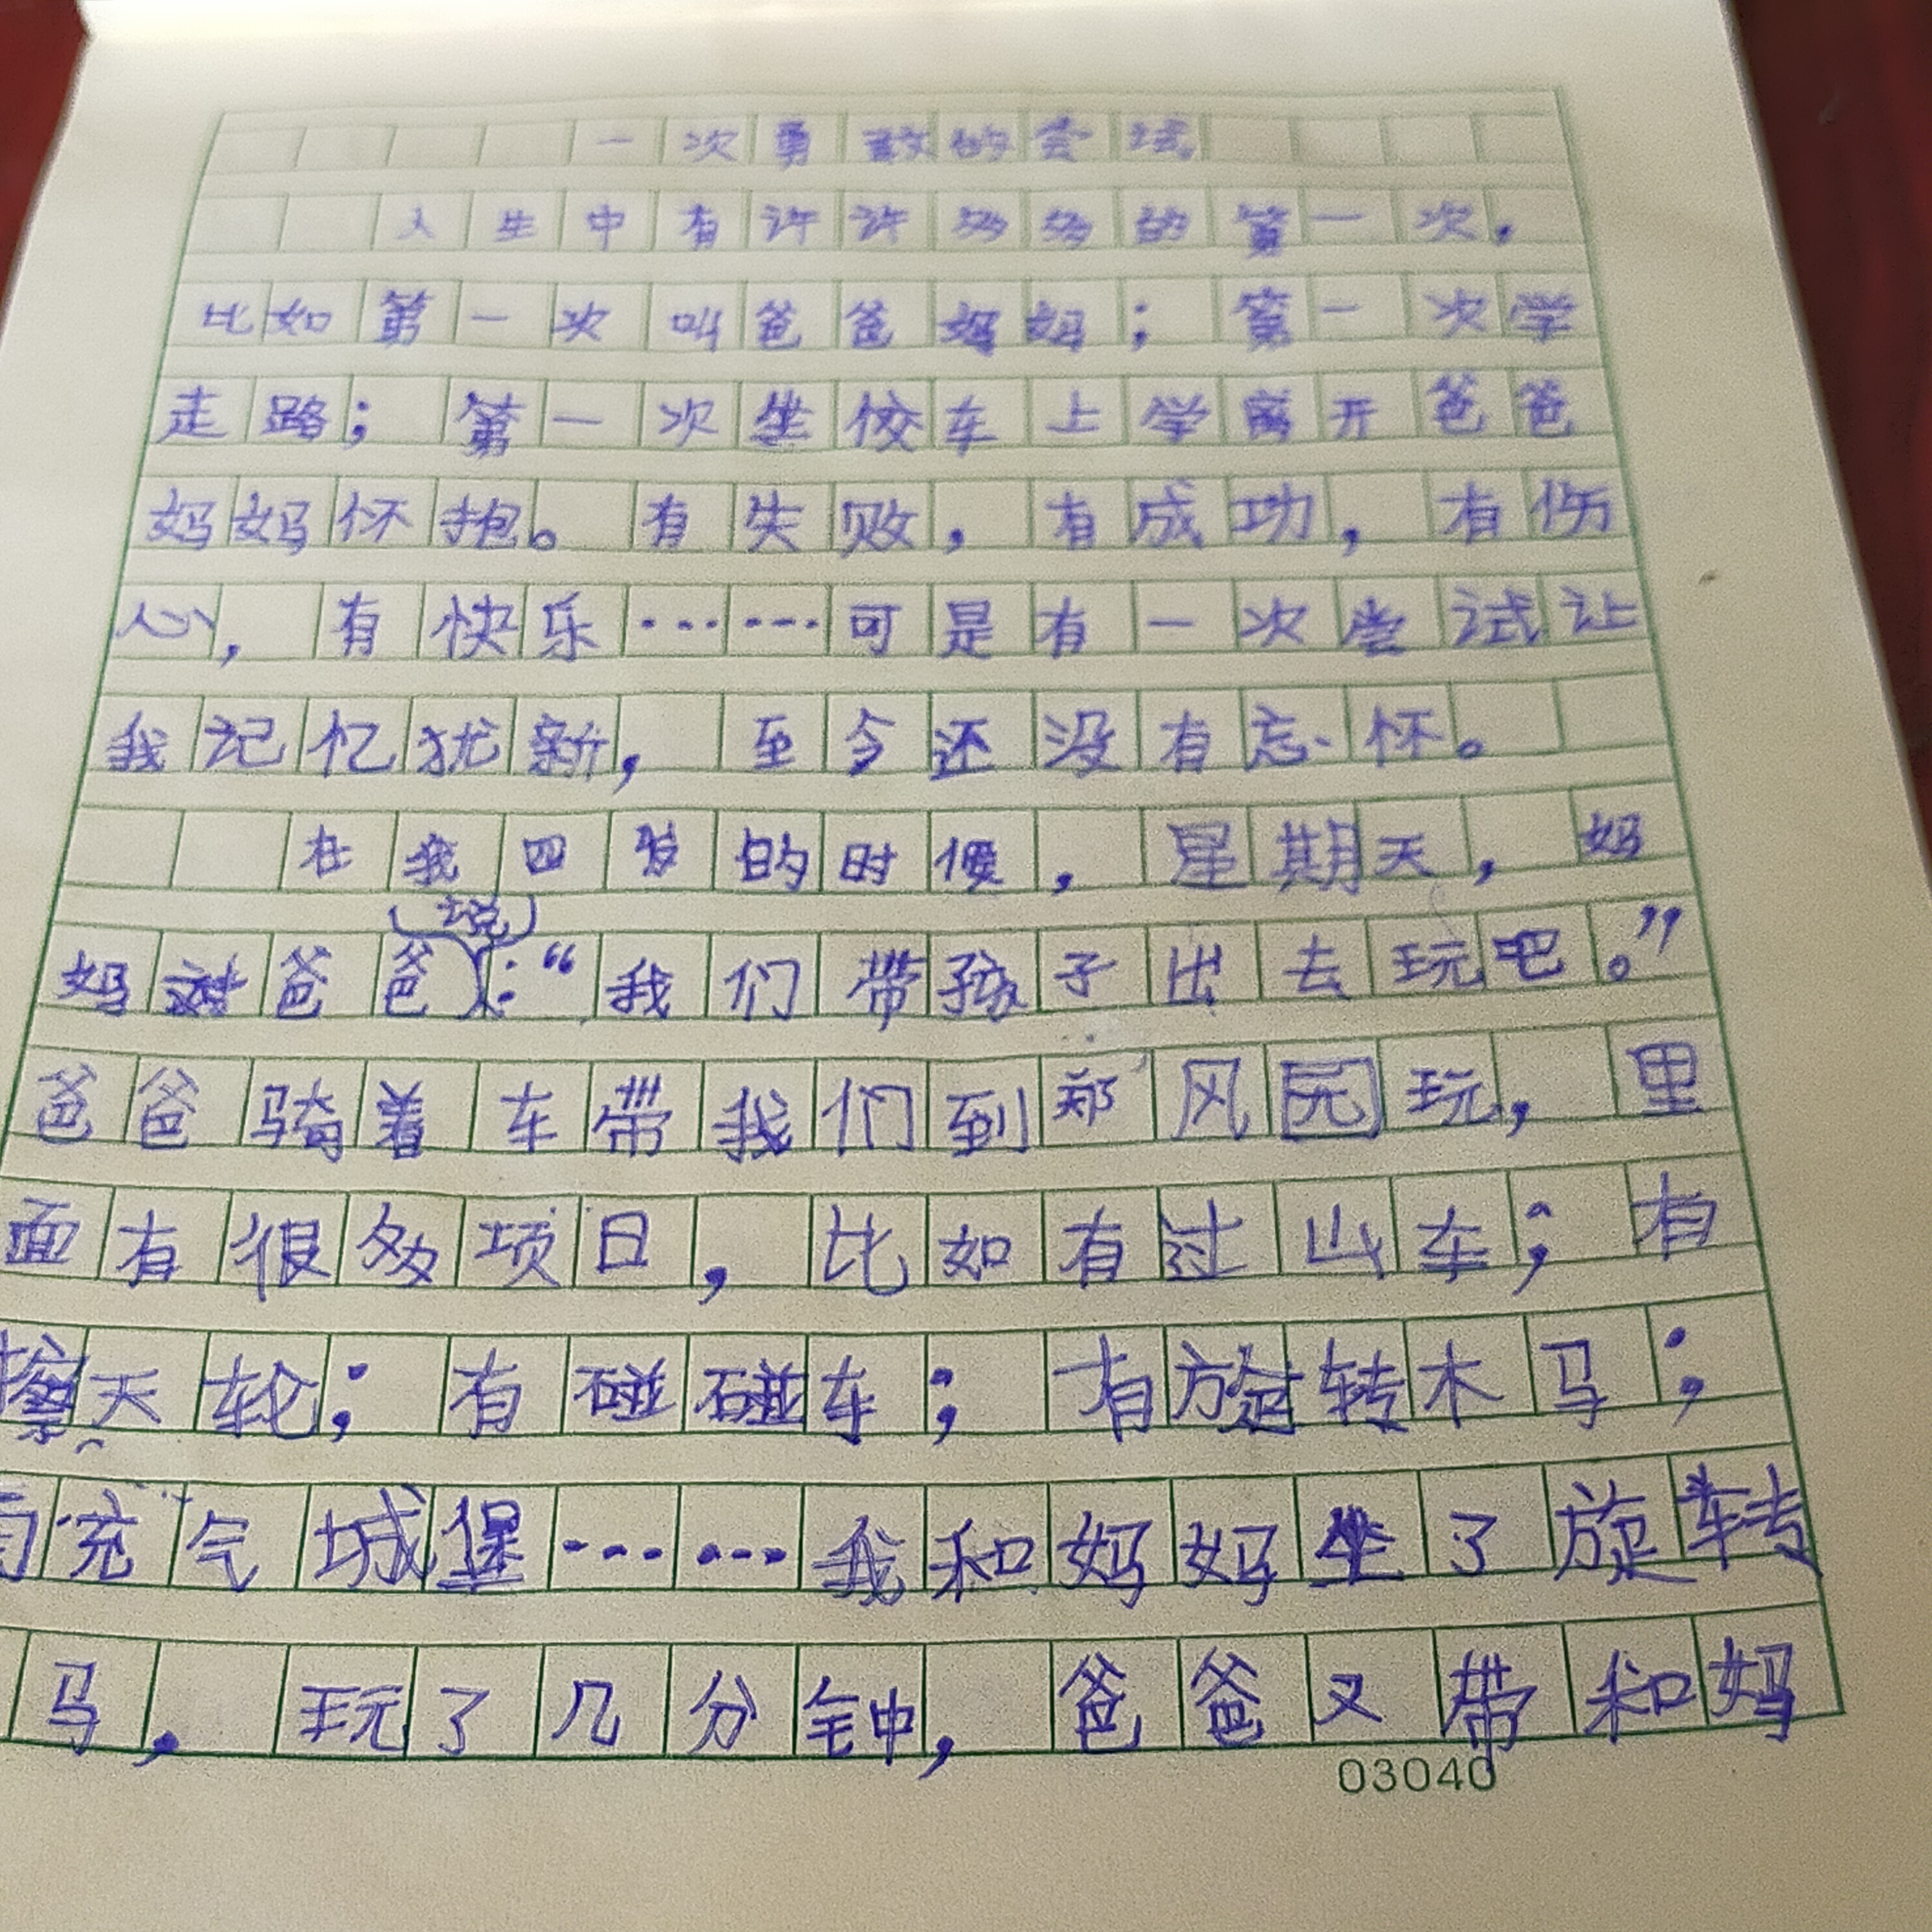 一次勇敢的尝试
人生中有许许多多的第一次，
比如第一次叫爸爸妈妈；第一次学
走路；第一次坐校车上学离开爸爸
妈妈怀抱。有失败，有成功，有伤
心，有快乐……可是有一次尝试让
我记忆犹新，至今还没有忘怀。
在我四岁的时候，星期天，妈
妈对爸爸说：“我们带孩子出去玩吧。”
爸爸骑着车带我们到郑风园玩，里
面有很多项目，比如有过山车；有
摩天轮；有碰碰车；有旋转木马；
有充气城堡……我和妈妈坐了旋转
马，玩了几分钟，爸爸又带和妈
03040